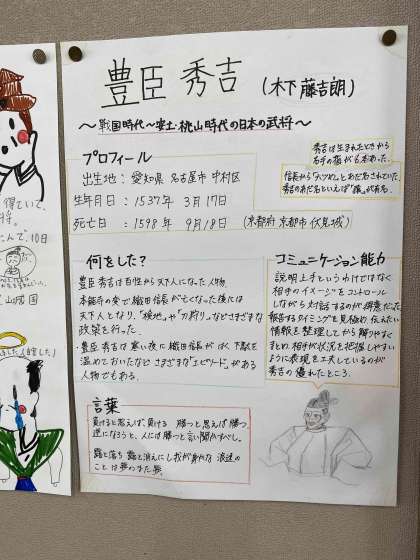 豊臣 秀吉 (木下 藤吉朗)
〜戦国時代〜安土・桃山時代の日本の武将〜
プロフィール
出生地: 愛知県 名古屋市 中村区
生年月日: 1537年 3月17日
死亡日: 1598年 9月18日 (京都府 京都市 伏見城)
秀吉は生まれたときから
右手の指が6本あった。
信長から「ハゲねずみ」とあだ名されていた。
秀吉のあだ名といえば「猿」が有名。
何をした?
豊臣 秀吉は百姓から天下人になった人物
本能寺の変で織田信長が亡くなった後には
天下人となり、「検地」や「刀狩り」などさまざまな
政策を行った.
・豊臣 秀吉は寒い夜に織田信長がはく下駄を
温めておいたなど さまざまな「エピソード」がある
人物でもある.
コミュニケーション能力
説明上手というわけではなく
相手のイメージをコントロール
しながら対話するのが得意だった
報告するタイミングを見極め伝えたい
情報を整理してから解りやすく
まとめ、相手が状況を把握しやすい
ように表現を工夫しているのが
秀吉の優れたところ.
言葉
負けると思えば、負ける 勝つと思えば勝つ.
逆になろうと、人には勝つと言い聞かすべし.
露と落ち 露と消えにし 我が身かな 浪速の
ことは 夢のまた夢.
得ていて、
将。
10日
山城国